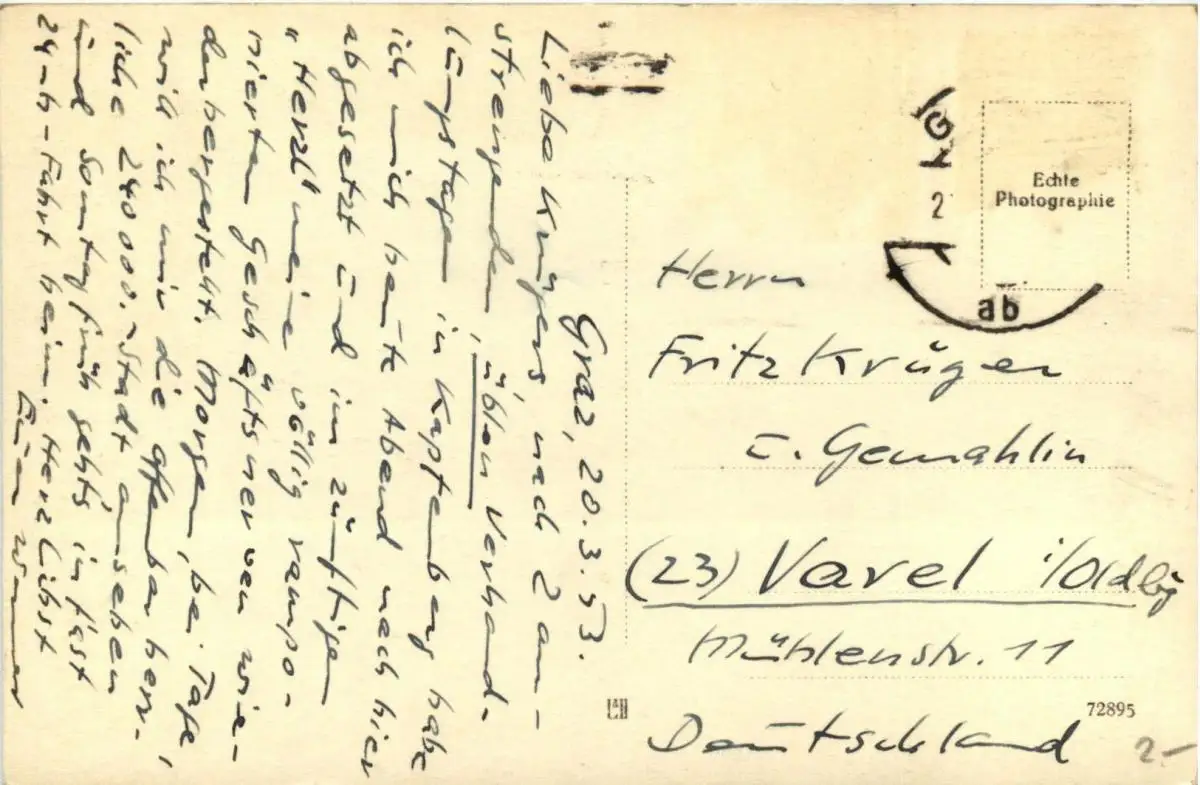 Graz, 20.3.53.
Liebe Krügers, nach 2 an-
strengenden, üblen Verhand-
lungstagen in Kapfenberg habe
ich mich heute Abend nach hier
abgesetzt und im zünftigen
"Herzl" meine völlig rampo-
nierten Geschäftsnerven wie-
der hergestellt. Morgen, bei Tage,
will ich mir die offenbar herr-
liche 240000.-Stadt ansehen,
und Sonntagfrüh geht's in fast
24-h-Fahrt heim. Herzlichst
Euer Werner
Echte
Photographie
G
2
ab
Herrn
Fritz Krüger
u. Gemahlin
(23) Varel i/Oldbg
Mühlenstr. 11
Deutschland
72895
2-